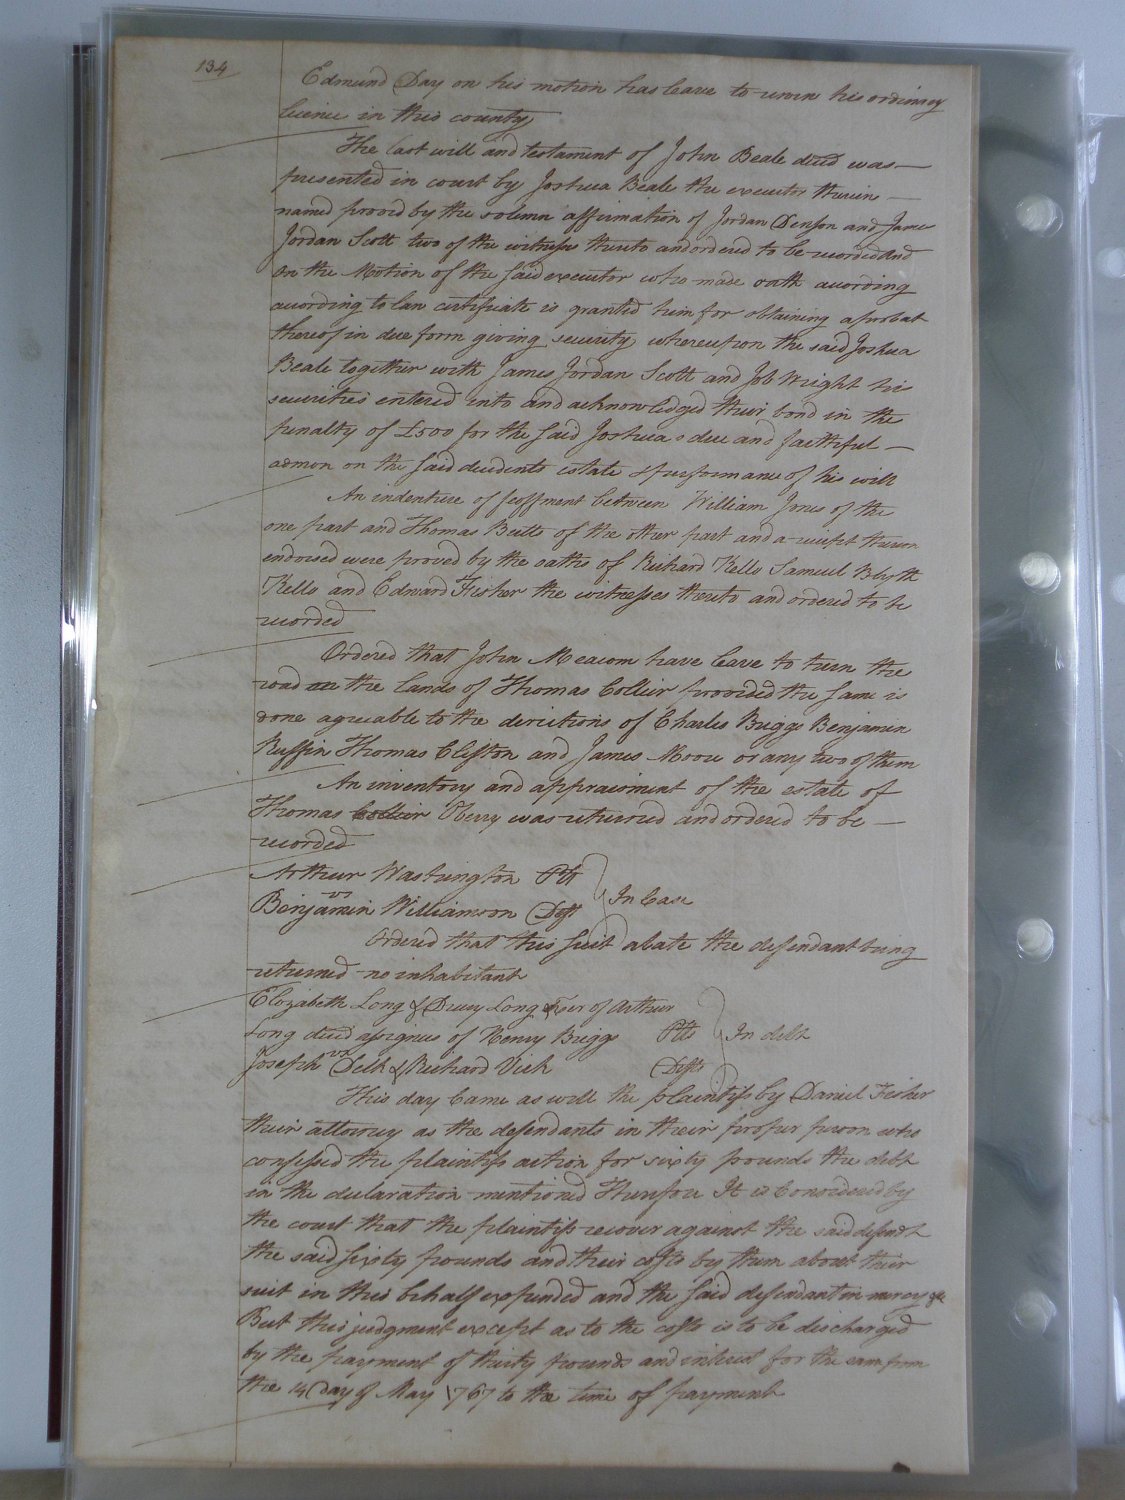 134
Edmund Day on his motion has leave to renew his ordinary
licence in this county
The last will and testament of John Beale decd was
presented in court by Joshua Beale the executor therein
named proved by the solemn affirmation of Jordan Denson and James
Jordan Scott two of the witnesses thereto and ordered to be recorded And
on the Motion of the said executor who made oath according
according to law certificate is granted him for obtaining a probat
thereof in due form giving security whereupon the said Joshua
Beale together with James Jordan Scott and Job Wright his
securities entered into and acknowledged their bond in the
penalty of £500 for the said Joshua s due and faithful
admon on the said decedents estate & performance of his will
An indenture of feoffment between William Jones of the
one part and Thomas Butts of the other part and a receipt thereon
endorsed were proved by the oaths of Richard Kello Samuel Blyth
Kello and Edward Fisher the witnesses thereto and ordered to be
recorded
Ordered that John Meacom have leave to turn the
road on the lands of Thomas Collier provided the same is
done agreeable to the directions of Charles Briggs Benjamin
Ruffin Thomas Clifton and James Moore or any two of them
An inventory and appraisment of the estate of
Thomas Collier Oberry was returned and ordered to be
recorded
Arthur Washington Plt
vs
Benjamin Williamson Deft
In Case
Ordered that this suit abate the defendant being
returned no inhabitant
Elizabeth Long & Drury Long exer of Arthur
Long decd assignees of Henry Briggs Plts
In debt
vs
Joseph Delk & Richard Vick Defts
This day Came as well the plaintifs by Daniel Fisher
their attorney as the defendants in their proper person who
confessed the plaintifs action for sixty pounds the debt
in the declaration mentioned Therefore It is Considered by
the court that the plaintifs recover against the said defendt
the said sixty pounds and their costs by them about their
suit in this behalf expended and the said defendant in mercy &c
But this judgment except as to the costs is to be discharged
by the payment of thirty pounds and interest for the same from
the 14 Day of May 1767 to the time of payment